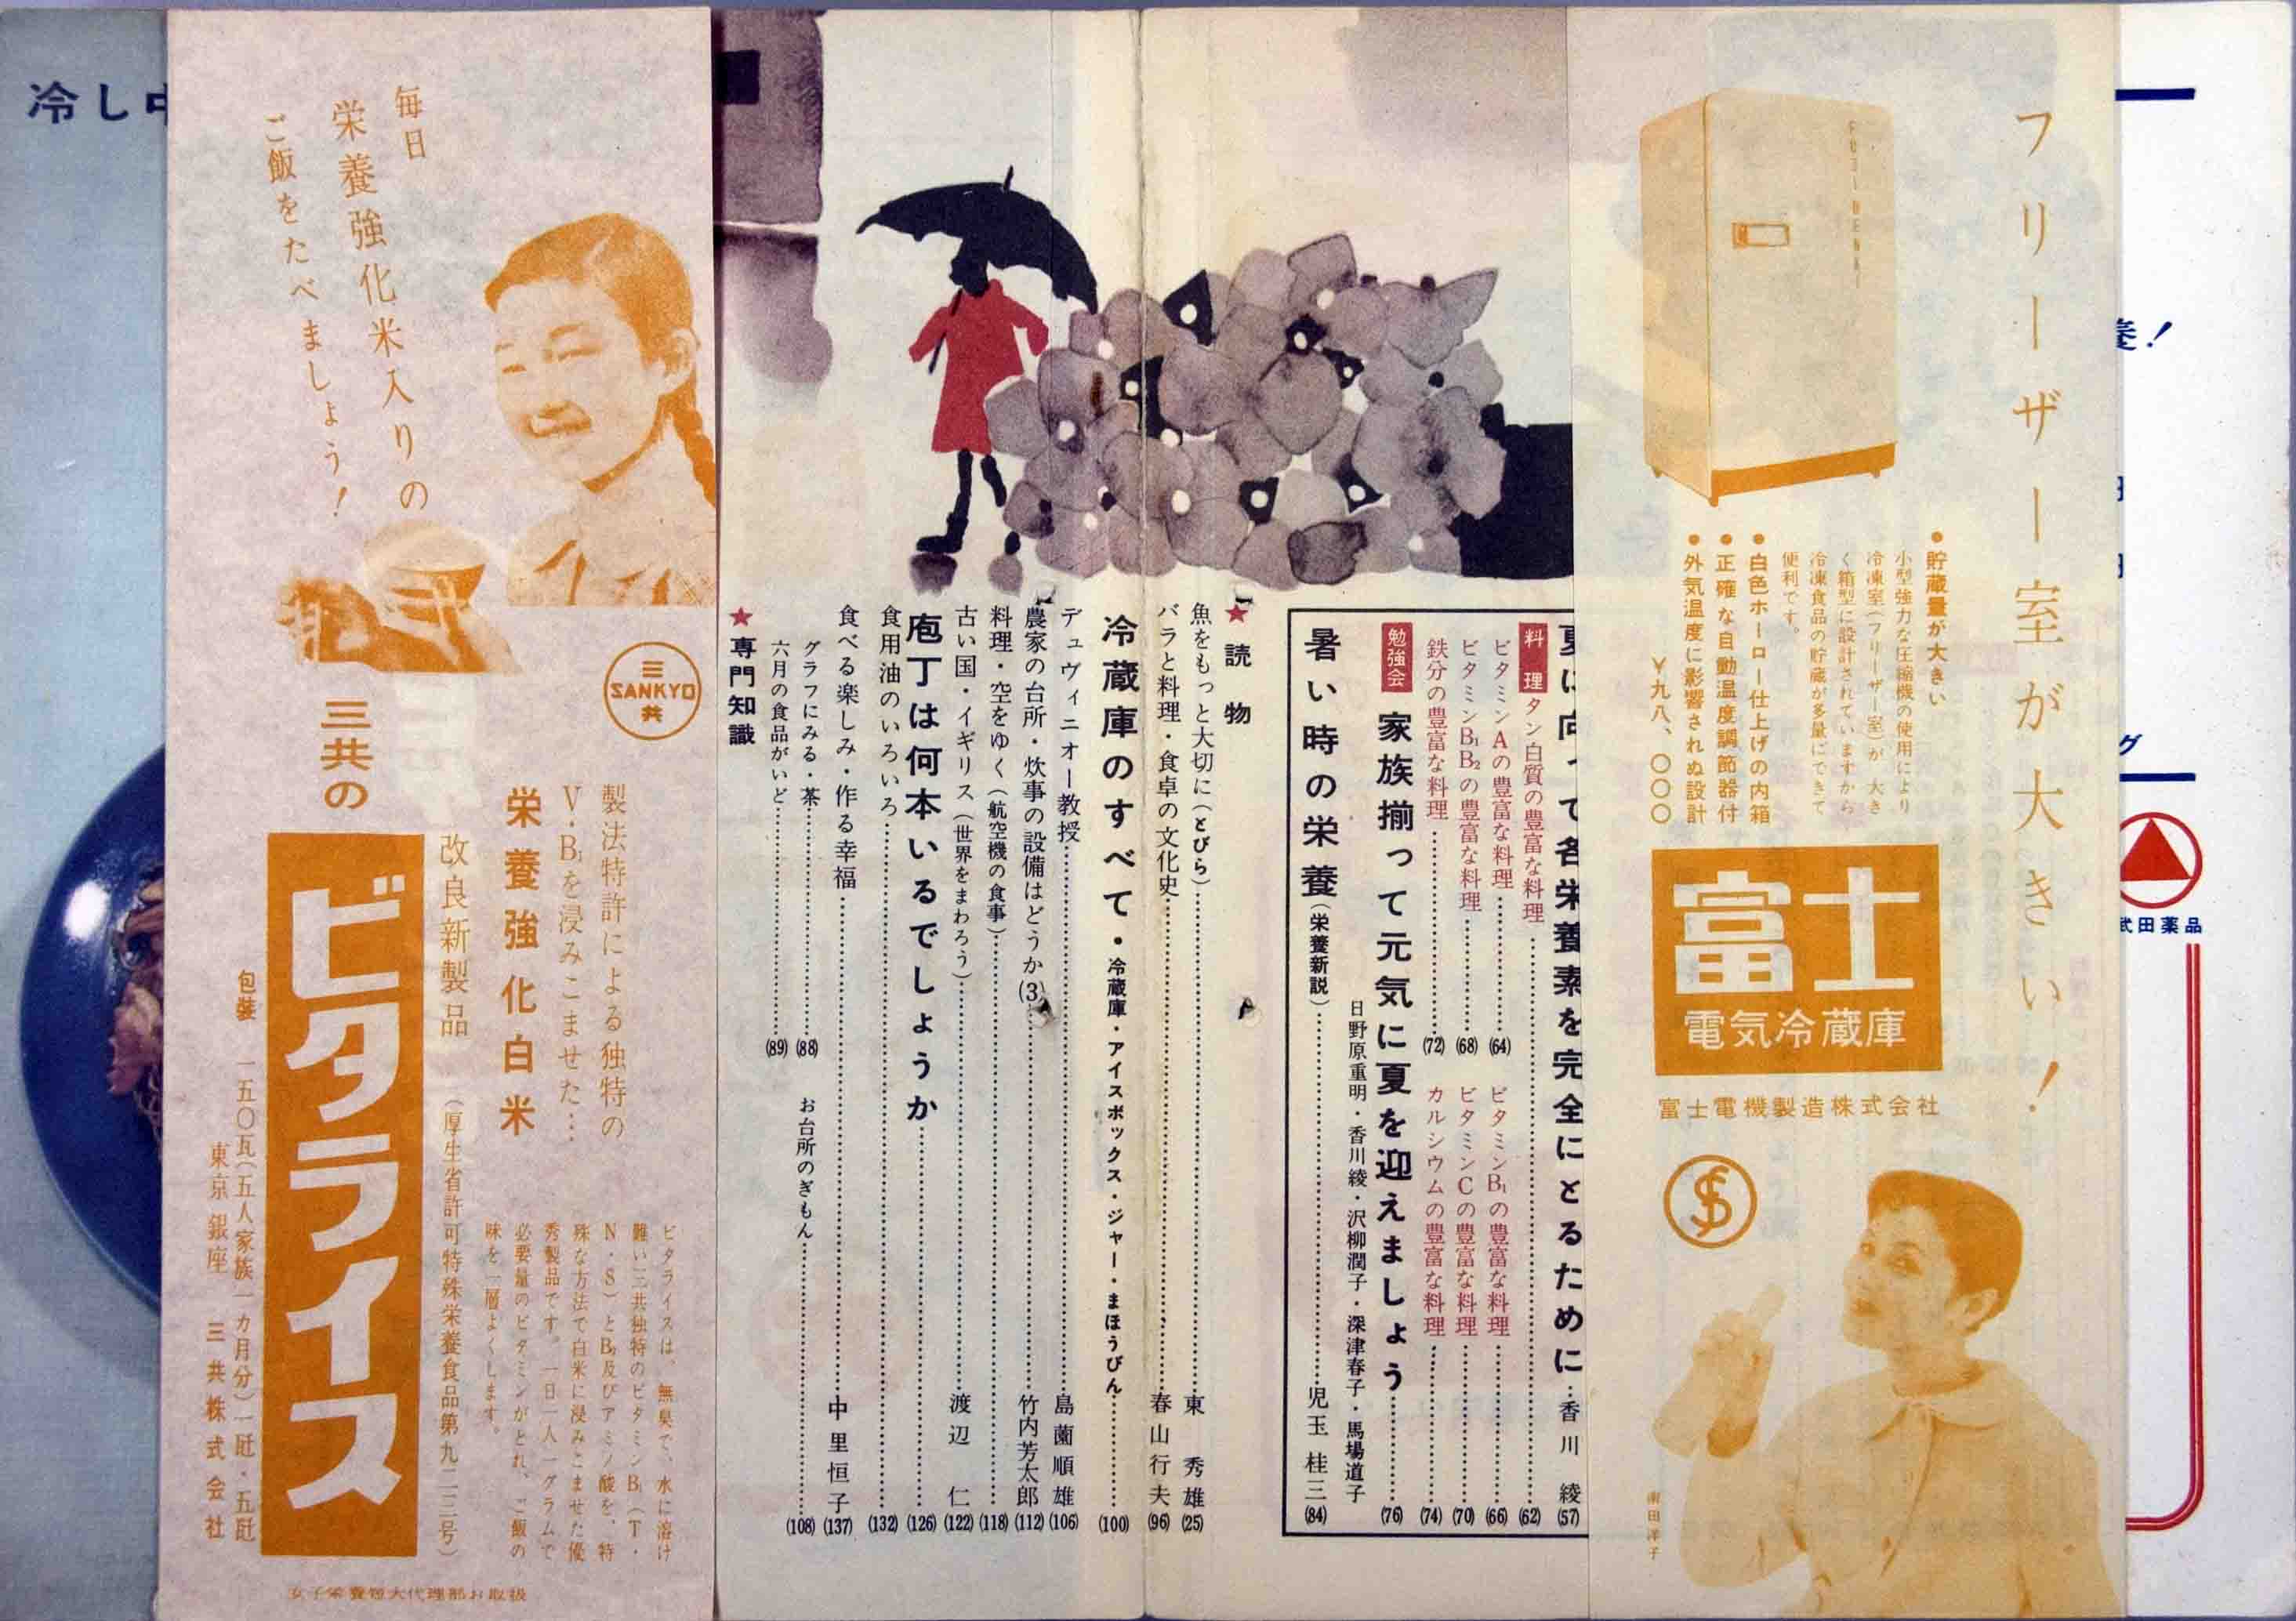 フリーザー室が大きい！
FUJI DENKI
●貯蔵量が大きい
小型強力な圧縮機の使用により
冷凍室(フリーザー室)が 大き
く箱型に設計されていますから
冷凍食品の貯蔵が多量にできて
便利です。
●白色ホーロー仕上げの内箱
●正確な自動温度調節器付
●外気温度に影響されぬ設計
￥九八、〇〇〇
富士
電気冷蔵庫
富士電機製造株式会社
南田洋子
夏に向って各栄養素を完全にとるために・香川 綾(57)
料理
タン白質の豊富な料理(62)
ビタミンAの豊富な料理(64)
ビタミンB₁の豊富な料理(66)
ビタミンB₁B₂の豊富な料理(68)
ビタミンCの豊富な料理(70)
鉄分の豊富な料理(72)
カルシウムの豊富な料理(74)
勉強会
家族揃って元気に夏を迎えましょう(76)
日野原重明・香川綾・沢柳潤子・深津春子・馬場道子
暑い時の栄養(栄養新説)児玉桂三(84)
★読物
魚をもっと大切に(とびら)東 秀雄(25)
バラと料理・食卓の文化史春山行夫(96)
冷蔵庫のすべて・冷蔵庫・アイスボックス・ジャー・まほうびん(100)
デュヴィニオー教授島薗順雄(106)
農家の台所・炊事の設備はどうか(3)竹内芳太郎(112)
料理・空をゆく(航空機の食事)(118)
古い国・イギリス(世界をまわろう)渡辺 仁(122)
庖丁は何本いるでしょうか(126)
食用油のいろいろ(132)
食べる楽しみ・作る幸福中里恒子(137)
グラフにみる・茶(88)
お台所のぎもん(108)
六月の食品がいど(89)
★専門知識
毎日
栄養強化米入りの
ご飯をたべましょう！
三
SANKYO
共
製法特許による独特の
V・B₁を浸みこませた…
栄養強化白米
改良新製品
(厚生省許可特殊栄養食品第九二三号)
三共の
ビタライス
ビタライスは、無臭で、水に溶け
難い三共独特のビタミンB₁(T・
N・S)とB₂及びアミノ酸を、特
殊な方法で白米に浸みこませた優
秀製品です。一日一人一グラムで
必要量のビタミンがとれ、ご飯の
味を一層よくします。
包装 一五〇瓦(五人家族一カ月分)一瓩・五瓩
東京 銀座 三共株式会社
女子栄養短大代理部お取扱
冷し中
武田薬品